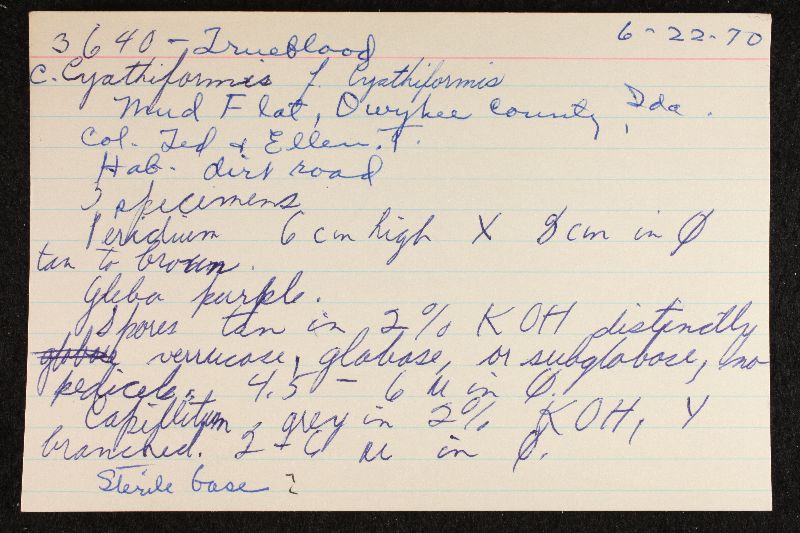 3640 - Trueblood 6-22-70
C. Cyathiformis f. Cyathiformis
Mud Flat, Owyhee County, Ida.
Col. Ted & Ellen. T.
Hab - dirt road
3 specimens
Peridium 6 cm high X 8 cm in Ø
tan to brown.
Gleba purple.
Spores tan in 2% KOH distinctly
verrucose, globose, or subglobose, no
pedicels, 4.5 - 6 u in Ø.
Capillitium, grey in 2% KOH, Y
branched. 2 - 6 u in Ø.
Sterile base ?